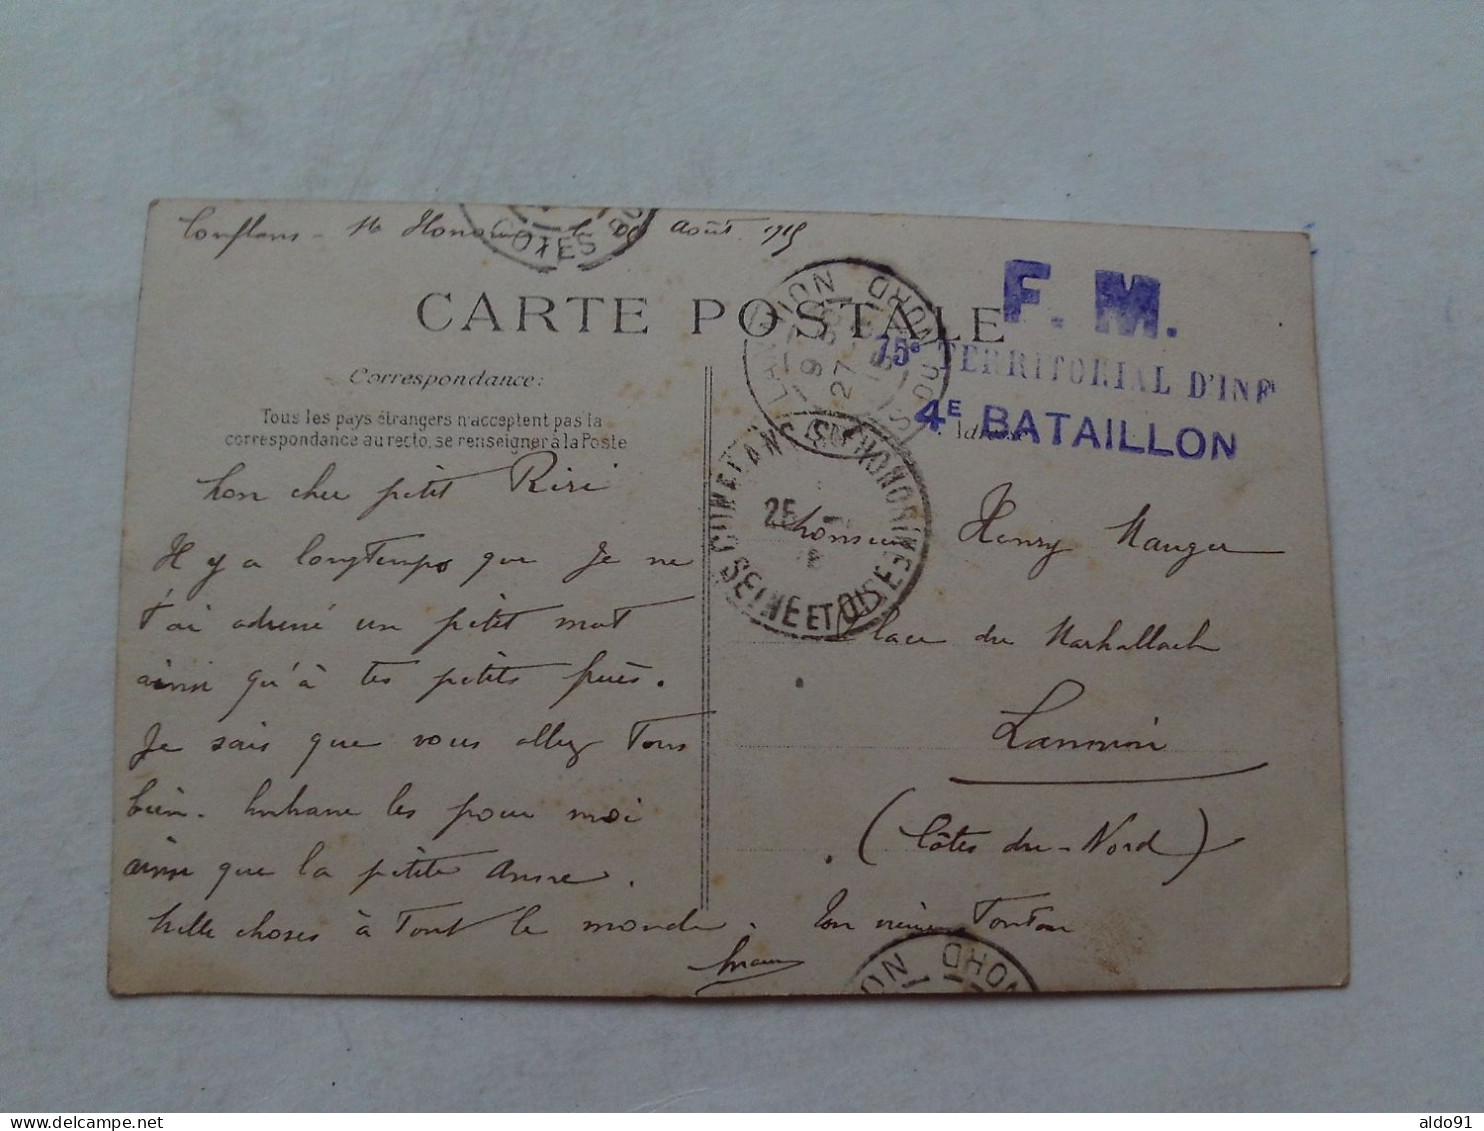 Conflans - Ste Honorine le août 1915
CÔTES DU
CARTE POSTALE
Correspondance:
Tous les pays étrangers n'acceptent pas la
correspondance au recto, se renseigner à la Poste
LANNION
CÔTES DU NORD
27
F. M.
75e TERRITORIAL D'INF
4E BATAILLON
Adresse
CONFLANS STE HONORINE
25
SEINE ET OISE
Mon cher petit Riri
Il y a longtemps que je ne
t'ai adressé un petit mot
ainsi qu'à tes petits frères.
Je sais que vous allez tous
bien. Embrasse les pour moi
ainsi que la petite Anne.
Mille choses à tout le monde. Ton vieux Tonton
Monsieur Henry Mauger
Place du Marhallach
Lannion
(Côtes du-Nord)
NORD
aldo91